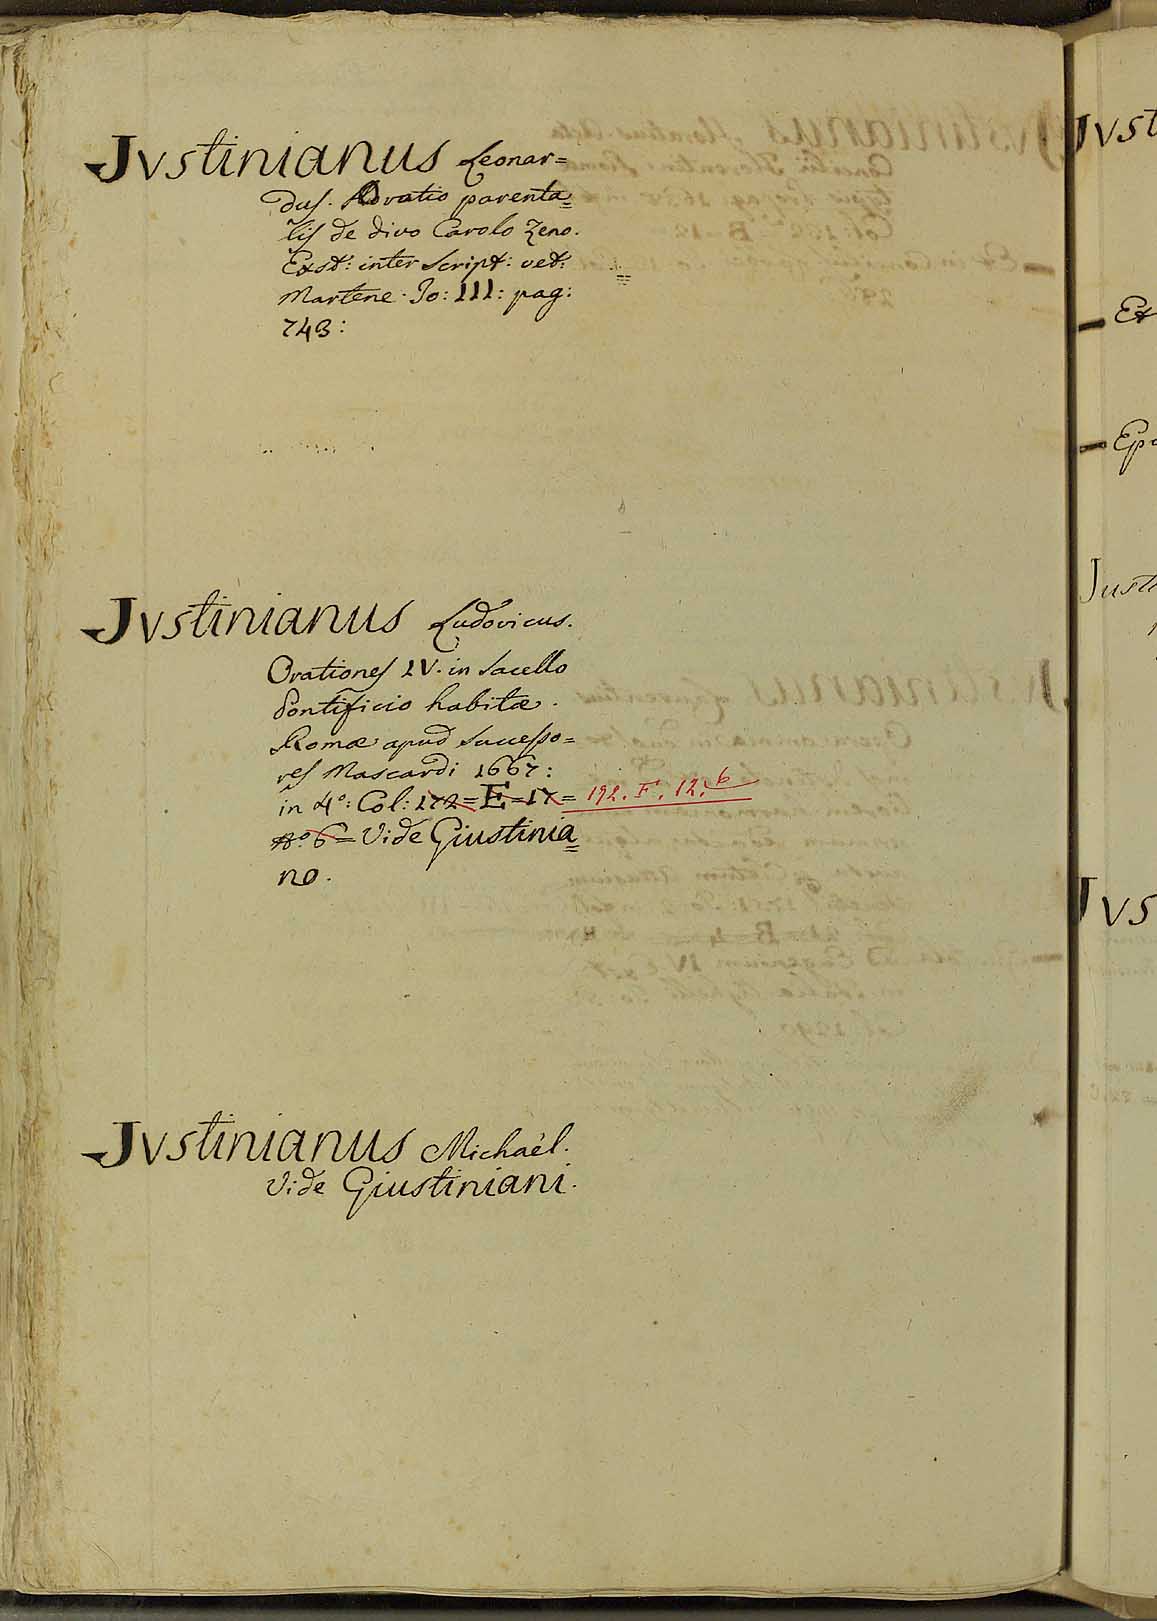 Jvstinianus Leonar=
dus. Oratio parenta=
lis de divo Carolo Zeno.
Exst: inter Script: vet:
Martene. To: III: pag:
743:
Jvstinianus Ludovicus.
Orationes IV. in Sacello
Pontificio habitæ.
Romæ apud Successo=
res Mascardi 1667:
in 4º: Col: 172=E=17= 192. F. 12. 6
Nº 6= Vide Giustinia=
no.
Jvstinianus Michaël.
Vide Giustiniani.
Jvst
Et
Justi
Jvs